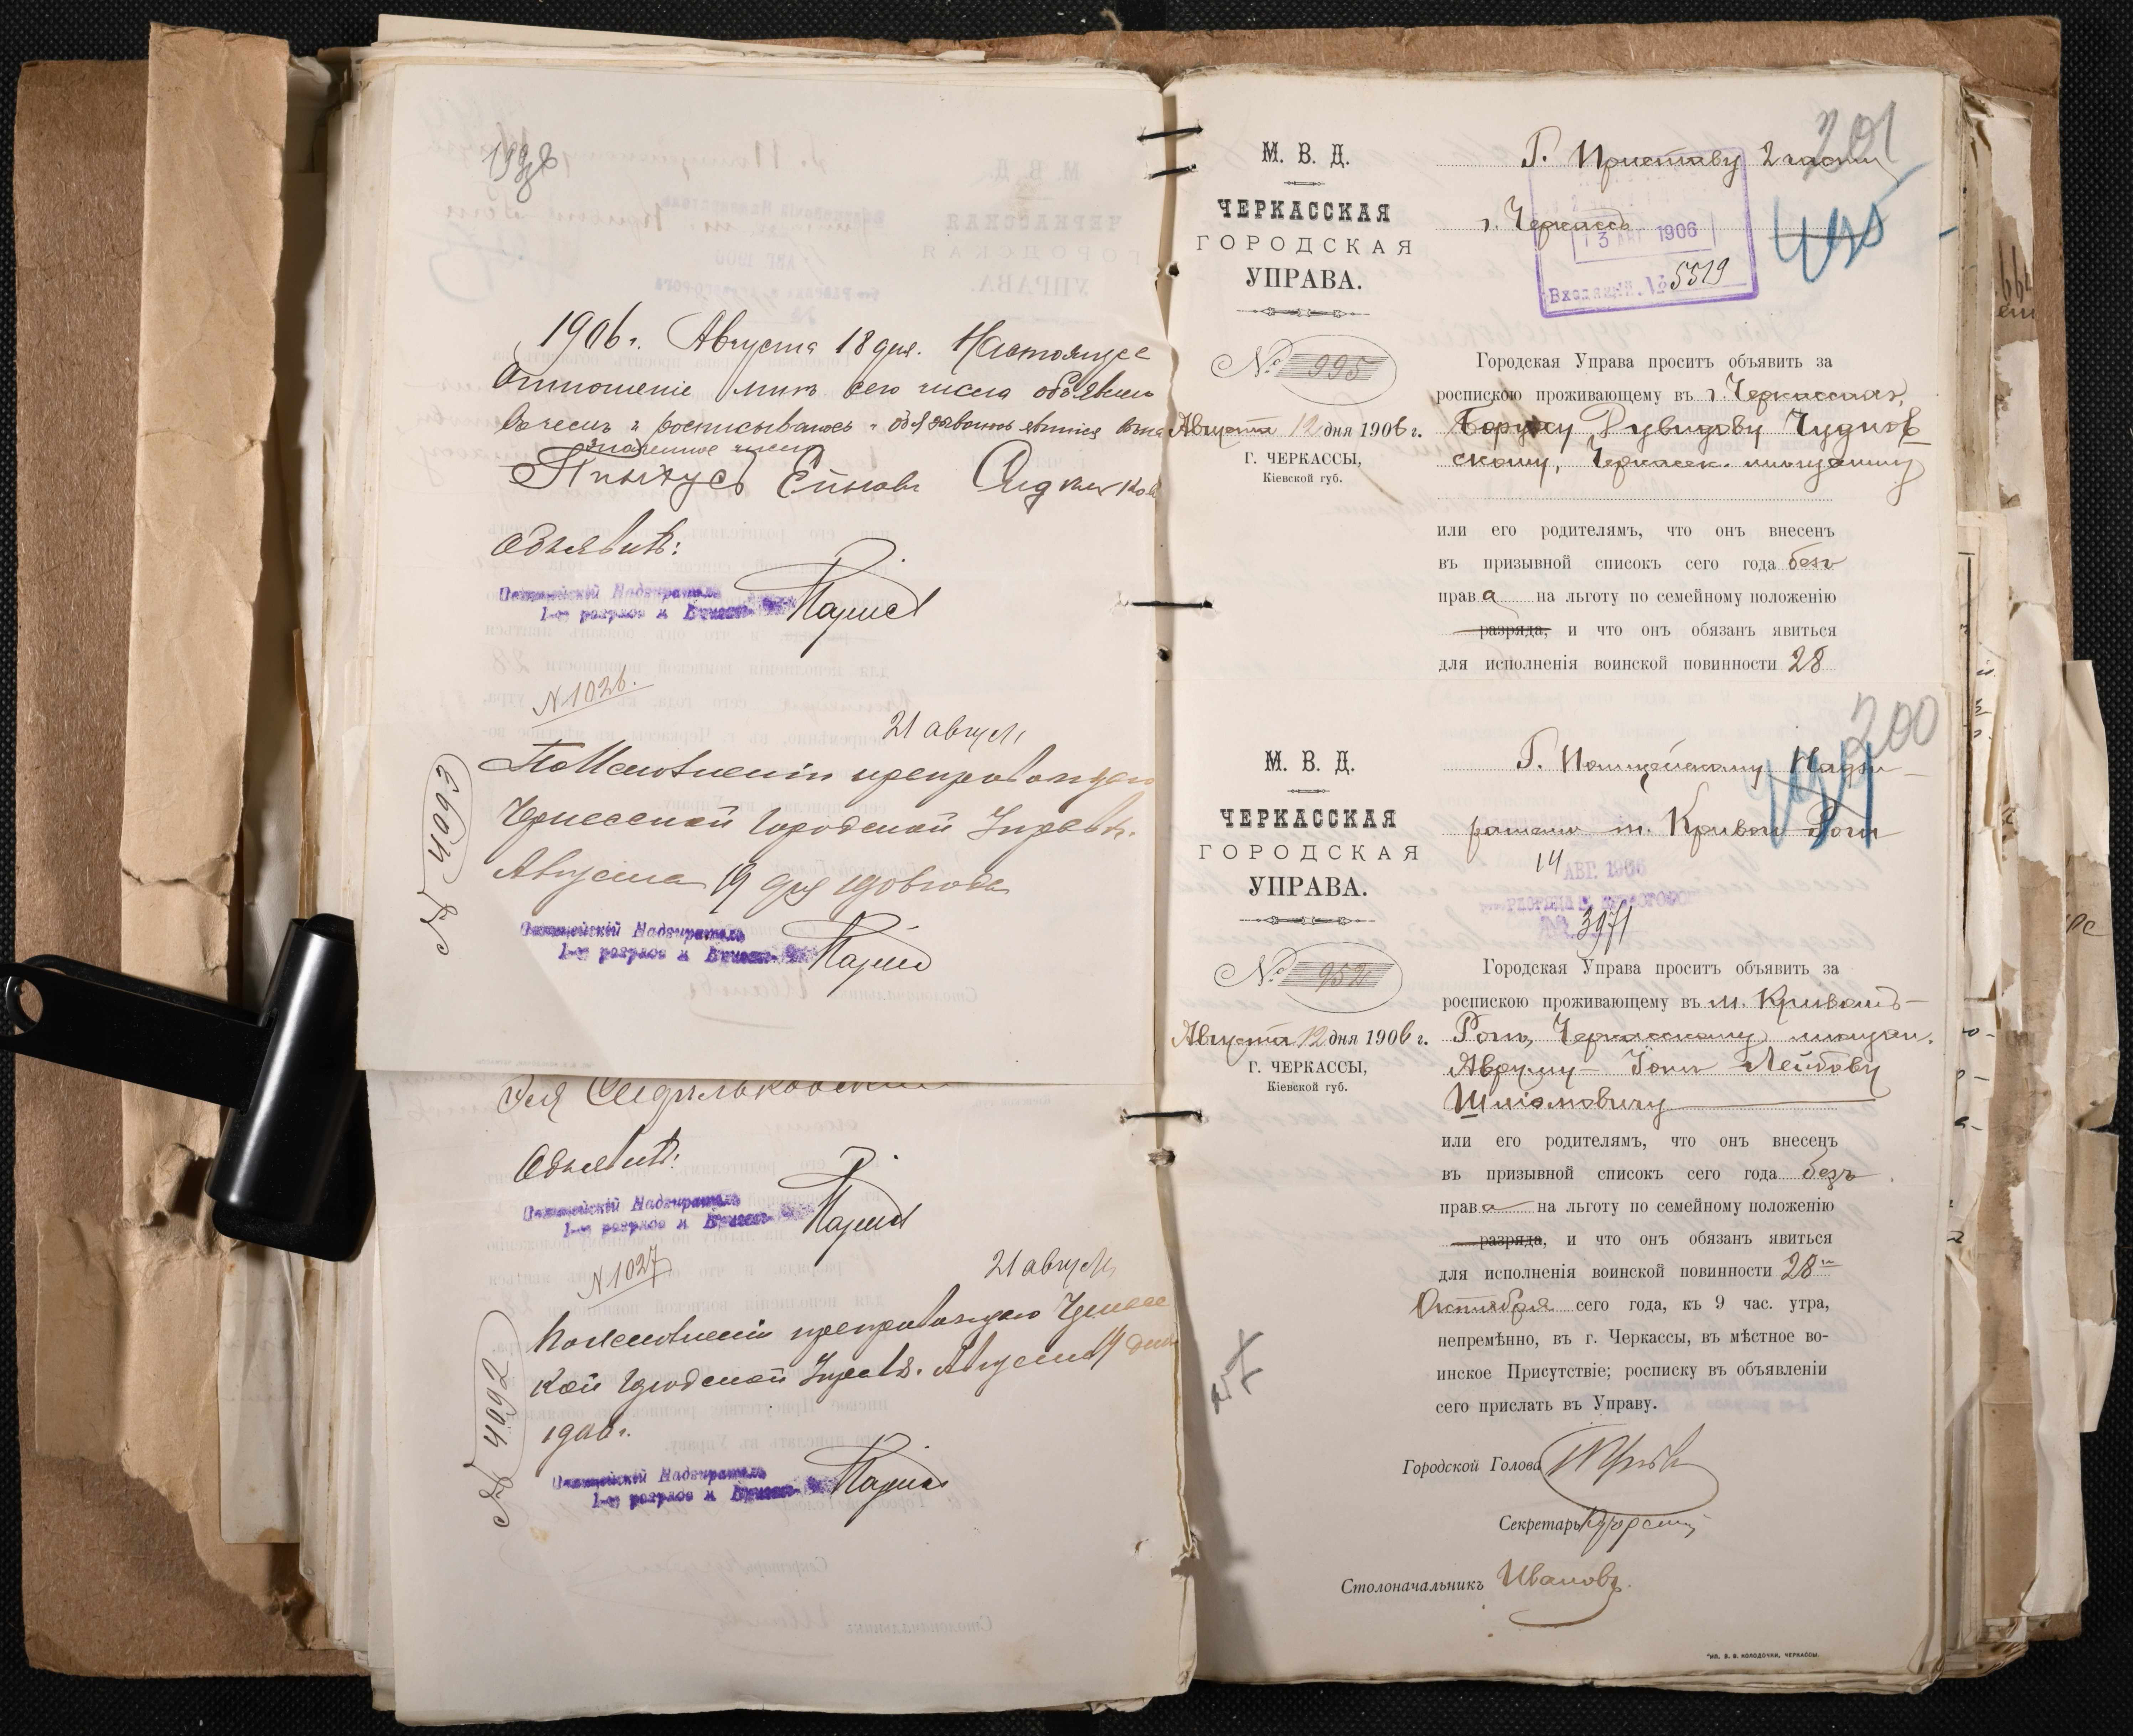 1906 г. Августа 18 дня. Настоящее
отношеніе мнѣ сего числа объявлено
въ чемъ и росписываюсь и обязываюсь явится въ на
значенное число
Пинхусъ
Объявилъ:
Полицейскій Надзиратель
1-го разряда м
N 1026.
21 августа
По исполненіи препровождаю
Черкасской Городской Управѣ.
Августа 19 дня 1906 года
№ 4093
Полицейскій Надзиратель
1-го разряда м
Объявилъ:
Полицейскій Надзиратель
1-го разряда м
N 1027
21 августа
По исполненіи препровождаю Черкасс
кой Городской Управѣ. Августа 19 дня
1906 г.
№ 4092
Полицейскій Надзиратель
1-го разряда м
201
М. В. Д.
ЧЕРКАССКАЯ
ГОРОДСКАЯ
УПРАВА.
№ 995
Августа 12 дня 1906 г.
Г. ЧЕРКАССЫ,
Кіевской губ.
Г. Приставу 2 части
г. Черкассъ
13 АВГ 1906
Входящій. № 5519
Городская Управа проситъ объявить за
роспискою проживающему въ г. Черкассахъ,
Боруху Рувидову Чуднов
скому, Черкасск. мѣщанину
или его родителямъ, что онъ внесенъ
въ призывной списокъ сего года безъ
права на льготу по семейному положенію
разряда, и что онъ обязанъ явиться
для исполненія воинской повинности 28
200
М. В. Д.
ЧЕРКАССКАЯ
ГОРОДСКАЯ
УПРАВА.
№ 952
Августа 12 дня 1906 г.
Г. ЧЕРКАССЫ,
Кіевской губ.
Г. Полицейскому Надзи-
рателю м. Кривой Рогъ
14 АВГ. 1906
№ 3971
Городская Управа проситъ объявить за
роспискою проживающему въ м. Кривомъ-
Рогѣ, Черкасскому мѣщан.
Авруму-Іонѣ Лейбову
Шліомовичу
или его родителямъ, что онъ внесенъ
въ призывной списокъ сего года безъ
права на льготу по семейному положенію
разряда, и что онъ обязанъ явиться
для исполненія воинской повинности 28го
Октября сего года, къ 9 час. утра,
непремѣнно, въ г. Черкассы, въ мѣстное во-
инское Присутствіе; росписку въ объявленіи
сего прислать въ Управу.
Городской Голова
Секретарь
Столоначальникъ Ивановъ.
Тип. В. В. КОЛОДОЧКИ, ЧЕРКАССЫ.